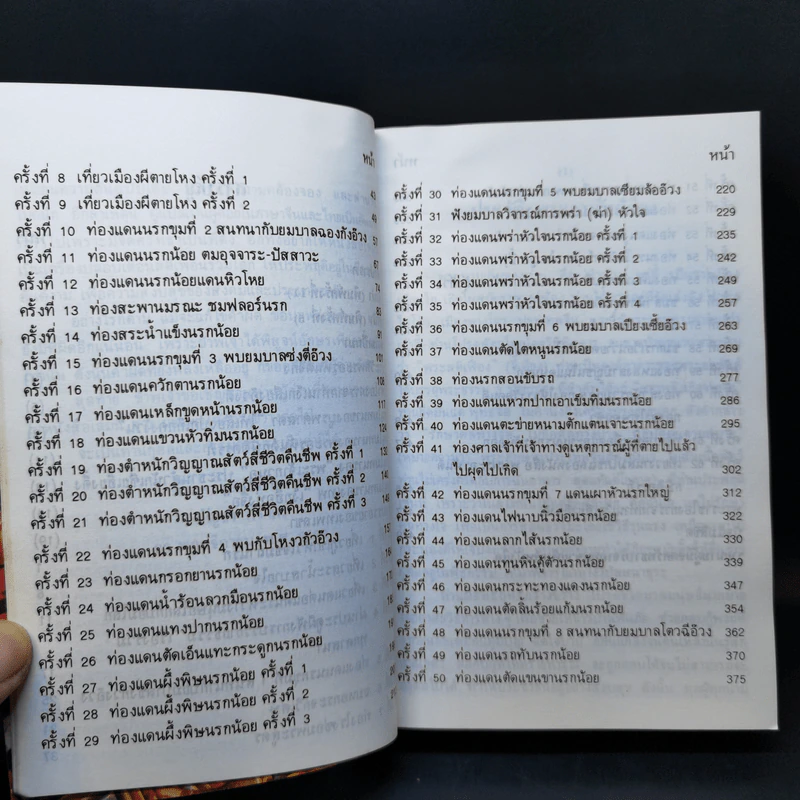 หน้า
ครั้งที่ 8 เที่ยวเมืองผีตายโหง ครั้งที่ 1 43
ครั้งที่ 9 เที่ยวเมืองผีตายโหง ครั้งที่ 2 49
ครั้งที่ 10 ท่องแดนนรกขุมที่ 2 สนทนากับยมบาลฉองกังอ๊วง 57
ครั้งที่ 11 ท่องแดนนรกน้อย ตมอุจจาระ-ปัสสาวะ 67
ครั้งที่ 12 ท่องแดนนรกน้อยแดนหิวโหย 74
ครั้งที่ 13 ท่องสะพานมรณะ ชมฟลอร์นรก 83
ครั้งที่ 14 ท่องสระน้ำแข็งนรกน้อย 91
ครั้งที่ 15 ท่องแดนนรกขุมที่ 3 พบยมบาลซ่งตี่อ๊วง 101
ครั้งที่ 16 ท่องแดนควักตานรกน้อย 108
ครั้งที่ 17 ท่องแดนเหล็กขูดหน้านรกน้อย 117
ครั้งที่ 18 ท่องแดนแขวนหัวทิ่มนรกน้อย 124
ครั้งที่ 19 ท่องตำหนักวิญญาณสัตว์สี่ชีวิตคืนชีพ ครั้งที่ 1 130
ครั้งที่ 20 ท่องตำหนักวิญญาณสัตว์สี่ชีวิตคืนชีพ ครั้งที่ 2
ครั้งที่ 21 ท่องตำหนักวิญญาณสัตว์สี่ชีวิตคืนชีพ ครั้งที่ 3
ครั้งที่ 22 ท่องแดนนรกขุมที่ 4 พบกับโหงวกัวอ๊วง
ครั้งที่ 23 ท่องแดนกรอกยานรกน้อย
ครั้งที่ 24 ท่องแดนน้ำร้อนลวกมือนรกน้อย
ครั้งที่ 25 ท่องแดนแทงปากนรกน้อย
ครั้งที่ 26 ท่องแดนตัดเอ็นแทะกระดูกนรกน้อย
ครั้งที่ 27 ท่องแดนผึ้งพิษนรกน้อย ครั้งที่ 1
ครั้งที่ 28 ท่องแดนผึ้งพิษนรกน้อย ครั้งที่ 2
ครั้งที่ 29 ท่องแดนผึ้งพิษนรกน้อย ครั้งที่ 3
หน้า
ครั้งที่ 30 ท่องแดนนรกขุมที่ 5 พบยมบาลเซียมล้ออ๊วง 220
ครั้งที่ 31 ฟังยมบาลวิจารณ์การพร่า (ฆ่า) หัวใจ 229
ครั้งที่ 32 ท่องแดนพร่าหัวใจนรกน้อย ครั้งที่ 1 235
ครั้งที่ 33 ท่องแดนพร่าหัวใจนรกน้อย ครั้งที่ 2 242
ครั้งที่ 34 ท่องแดนพร่าหัวใจนรกน้อย ครั้งที่ 3 249
ครั้งที่ 35 ท่องแดนพร่าหัวใจนรกน้อย ครั้งที่ 4 257
ครั้งที่ 36 ท่องแดนนรกขุมที่ 6 พบยมบาลเปียงเซี้ยอ๊วง 263
ครั้งที่ 37 ท่องแดนตัดไตหนูนรกน้อย 269
ครั้งที่ 38 ท่องนรกสอนขับรถ 277
ครั้งที่ 39 ท่องแดนแหวกปากเอาเข็มทิ่มนรกน้อย 286
ครั้งที่ 40 ท่องแดนตะข่ายหนามตั๊กแตนเจาะนรกน้อย 295
ครั้งที่ 41 ท่องศาลเจ้าที่เจ้าทางดูเหตุการณ์ผู้ที่ตายไปแล้ว
ไปผุดไปเกิด 302
ครั้งที่ 42 ท่องแดนนรกขุมที่ 7 แดนเผาหัวนรกใหญ่ 312
ครั้งที่ 43 ท่องแดนไฟนาบนิ้วมือนรกน้อย 322
ครั้งที่ 44 ท่องแดนลากไส้นรกน้อย 330
ครั้งที่ 45 ท่องแดนทูนหินคู้ตัวนรกน้อย 339
ครั้งที่ 46 ท่องแดนกระทะทองแดงนรกน้อย 347
ครั้งที่ 47 ท่องแดนตัดลิ้นร้อยแก้มนรกน้อย 354
ครั้งที่ 48 ท่องแดนนรกขุมที่ 8 สนทนากับยมบาลโตวฉีอ๊วง 362
ครั้งที่ 49 ท่องแดนรถทับนรกน้อย 370
ครั้งที่ 50 ท่องแดนตัดแขนขานรกน้อย 375